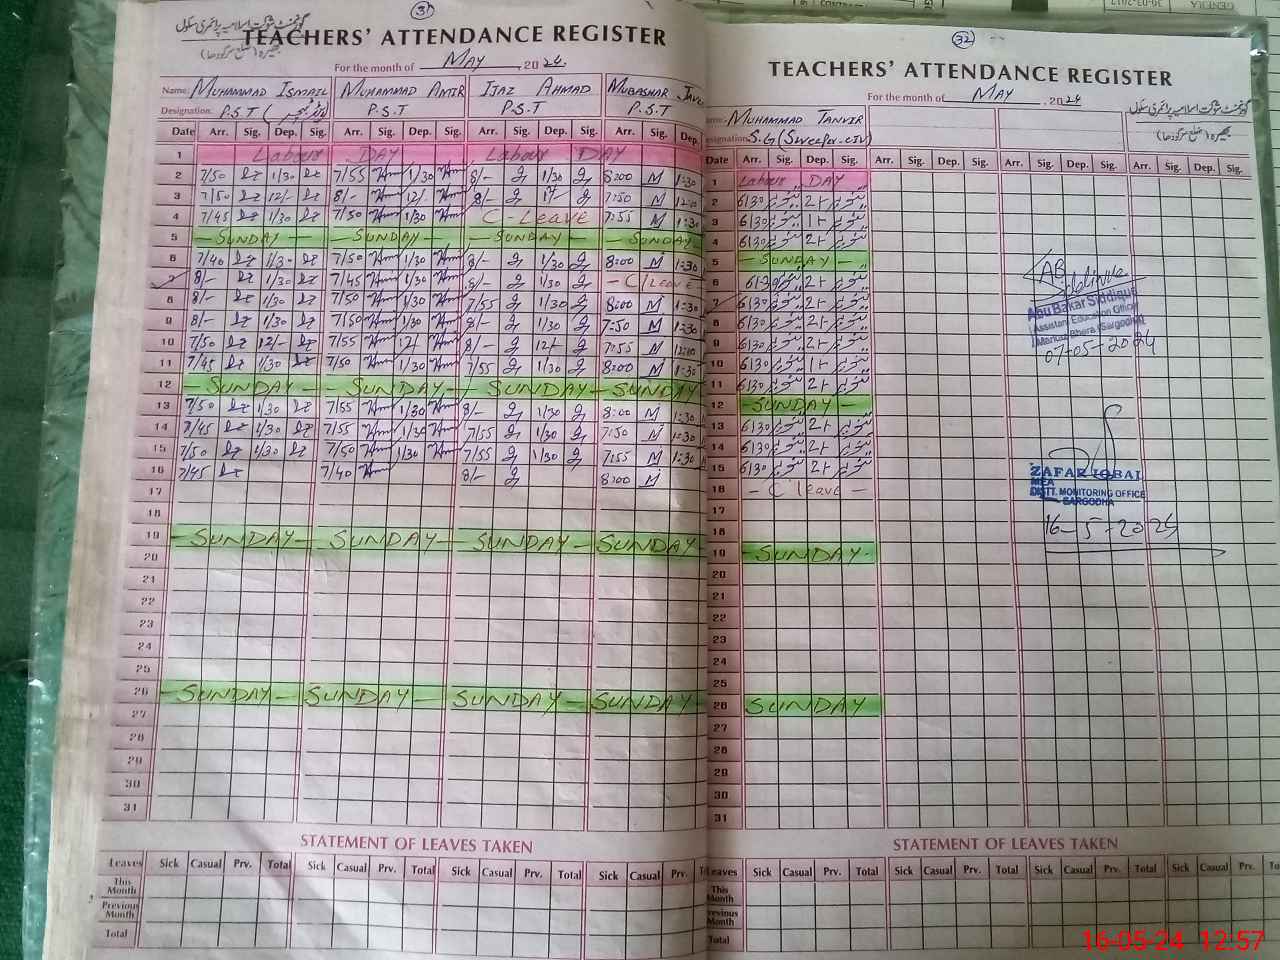 31
گورنمنٹ شوکت اسلامیہ پرائمری سکول
TEACHERS' ATTENDANCE REGISTER
For the month of MAY 2024.
Name: MUHAMMAD ISMAIL MUHAMMAD AMIR IJAZ AHMAD MUBASHAR
Designation: P.S.T P.S.T P.S.T P.S.T
Date Arr. Sig. Dep. Sig. Arr. Sig. Dep. Sig. Arr. Sig. Dep. Sig. Arr. Sig. Dep.
1 Labour DAY Labour DAY
2 7/50 1/30 7/55 1/30 8/- 1/30 8:00 M 1:30
3 7/50 12/- 8/- 12/- 8/- 7:50 M 12:00
4 7/45 1/30 7/50 1/30 C-Leave 7:55 M 1:30
5 -SUNDAY- -SUNDAY- -SUNDAY- -SUNDAY
6 7/40 1/30 7/50 1/30 8/- 1/30 8:00 M 1:30
7 8/- 1/30 7/45 1/30 8/- 1/30 -C/Leave
8 8/- 1/30 7/50 1/30 7/55 1/30 8:00 M 1:30
9 8/- 1/30 7/50 1/30 8/- 1/30 7:50 M 1:30
10 7/50 12/- 7/55 12/- 8/- 12/- 7:55 M 12:00
11 7/45 1/30 7/50 1/30 7/55 1/30 8:00 M 1:30
12 -SUNDAY- -SUNDAY- SUNDAY -SUNDAY
13 7/50 1/30 7/55 1/30 8/- 1/30 8:00 M 1:30
14 7/45 1/30 7/55 1/30 7/55 1/30 7:50 M 1:30
15 7/50 1/30 7/50 1/30 7/55 1/30 7:55 M 1:30
16 7/45 7/40 8/- 8:00 M
17
18
19 -SUNDAY- SUNDAY- SUNDAY- SUNDAY
20
21
22
23
24
25
26 -SUNDAY- SUNDAY- SUNDAY- SUNDAY
27
28
29
30
31
STATEMENT OF LEAVES TAKEN
Leaves Sick Casual Prv. Total Sick Casual Prv. Total Sick Casual Prv. Total Sick Casual Prv.
This Month
Previous Month
Total
32
TEACHERS' ATTENDANCE REGISTER
For the month of MAY, 2024
گورنمنٹ شوکت اسلامیہ پرائمری سکول
MUHAMMAD TANVIR
S.G (Sweeper.civ)
Date Arr. Sig. Dep. Sig. Arr. Sig. Dep. Sig. Arr. Sig. Dep. Sig. Arr. Sig.
1 Labour DAY
2 6130 2+
3 6130 1+
4 6130 2+
5 -SUNDAY-
6 6130 2+
7 6130 2+
8 6130 2+
9 6130 2+
10 6130 1+
11 6130 2+
12 -SUNDAY-
13 6130 2+
14 6130 2+
15 6130 2+
16 -C leave-
17
18
19 SUNDAY
20
21
22
23
24
25
26 SUNDAY
27
28
29
30
31
AB Siddique
Abu Bakar Siddique
Assistant Education Officer
Markaz Bhera (Sargodha)
07-05-2024
ZAFAR IQBAL
MEA
DISTT. MONITORING OFFICE
SARGODHA
16-5-2024
STATEMENT OF LEAVES TAKEN
Leaves Sick Casual Prv. Total Sick Casual Prv. Total Sick Casual Prv. Total Sick Casual Prv.
This Month
Previous Month
Total
16-05-24 12:57